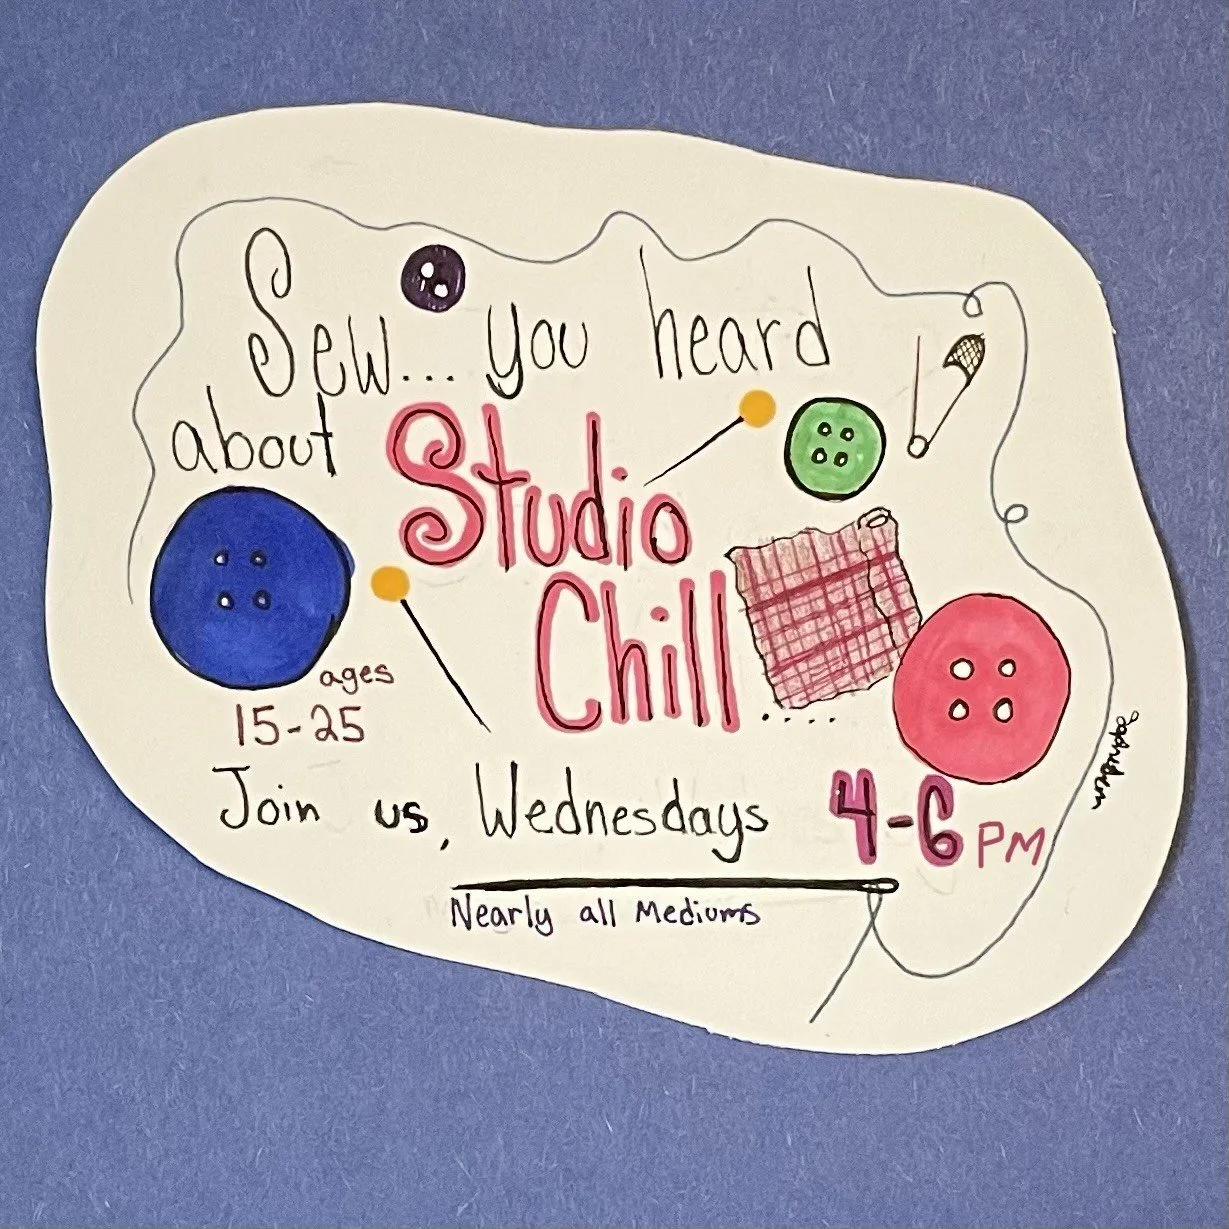 Sew... you heard
about Studio
Chill.....
ages
15-25
Join us, Wednesdays 4-6 PM
Nearly all Mediums